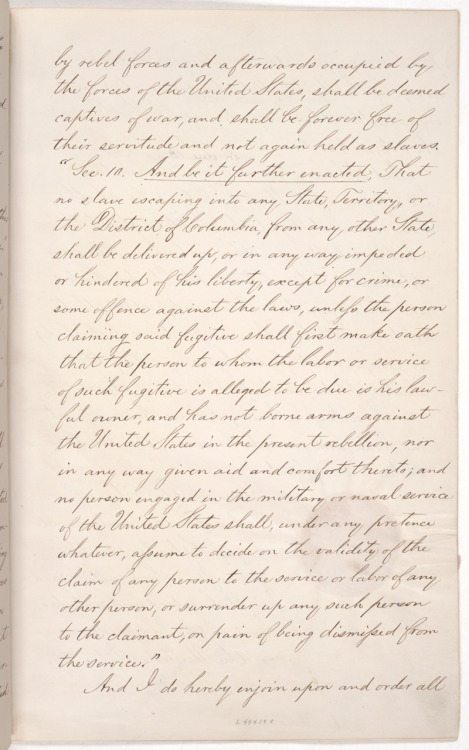 by rebel forces and afterwards occupied by
the forces of the United States, shall be deemed
captives of war, and shall be forever free of
their servitude and not again held as slaves.
"Sec. 10. And be it further enacted, That
no slave escaping into any State, Territory, or
the District of Columbia, from any other State,
shall be delivered up, or in any way impeded
or hindered of his liberty, except for crime, or
some offence against the laws, unless the person
claiming said fugitive shall first make oath
that the person to whom the labor or service
of such fugitive is alleged to be due is his law-
ful owner, and has not borne arms against
the United States in the present rebellion, nor
in any way given aid and comfort thereto; and
no person engaged in the military or naval service
of the United States shall, under any pretence
whatever, assume to decide on the validity of the
claim of any person to the service or labor of any
other person, or surrender up any such person
to the claimant, on pain of being dismissed from
the service."
And I do hereby enjoin upon and order all